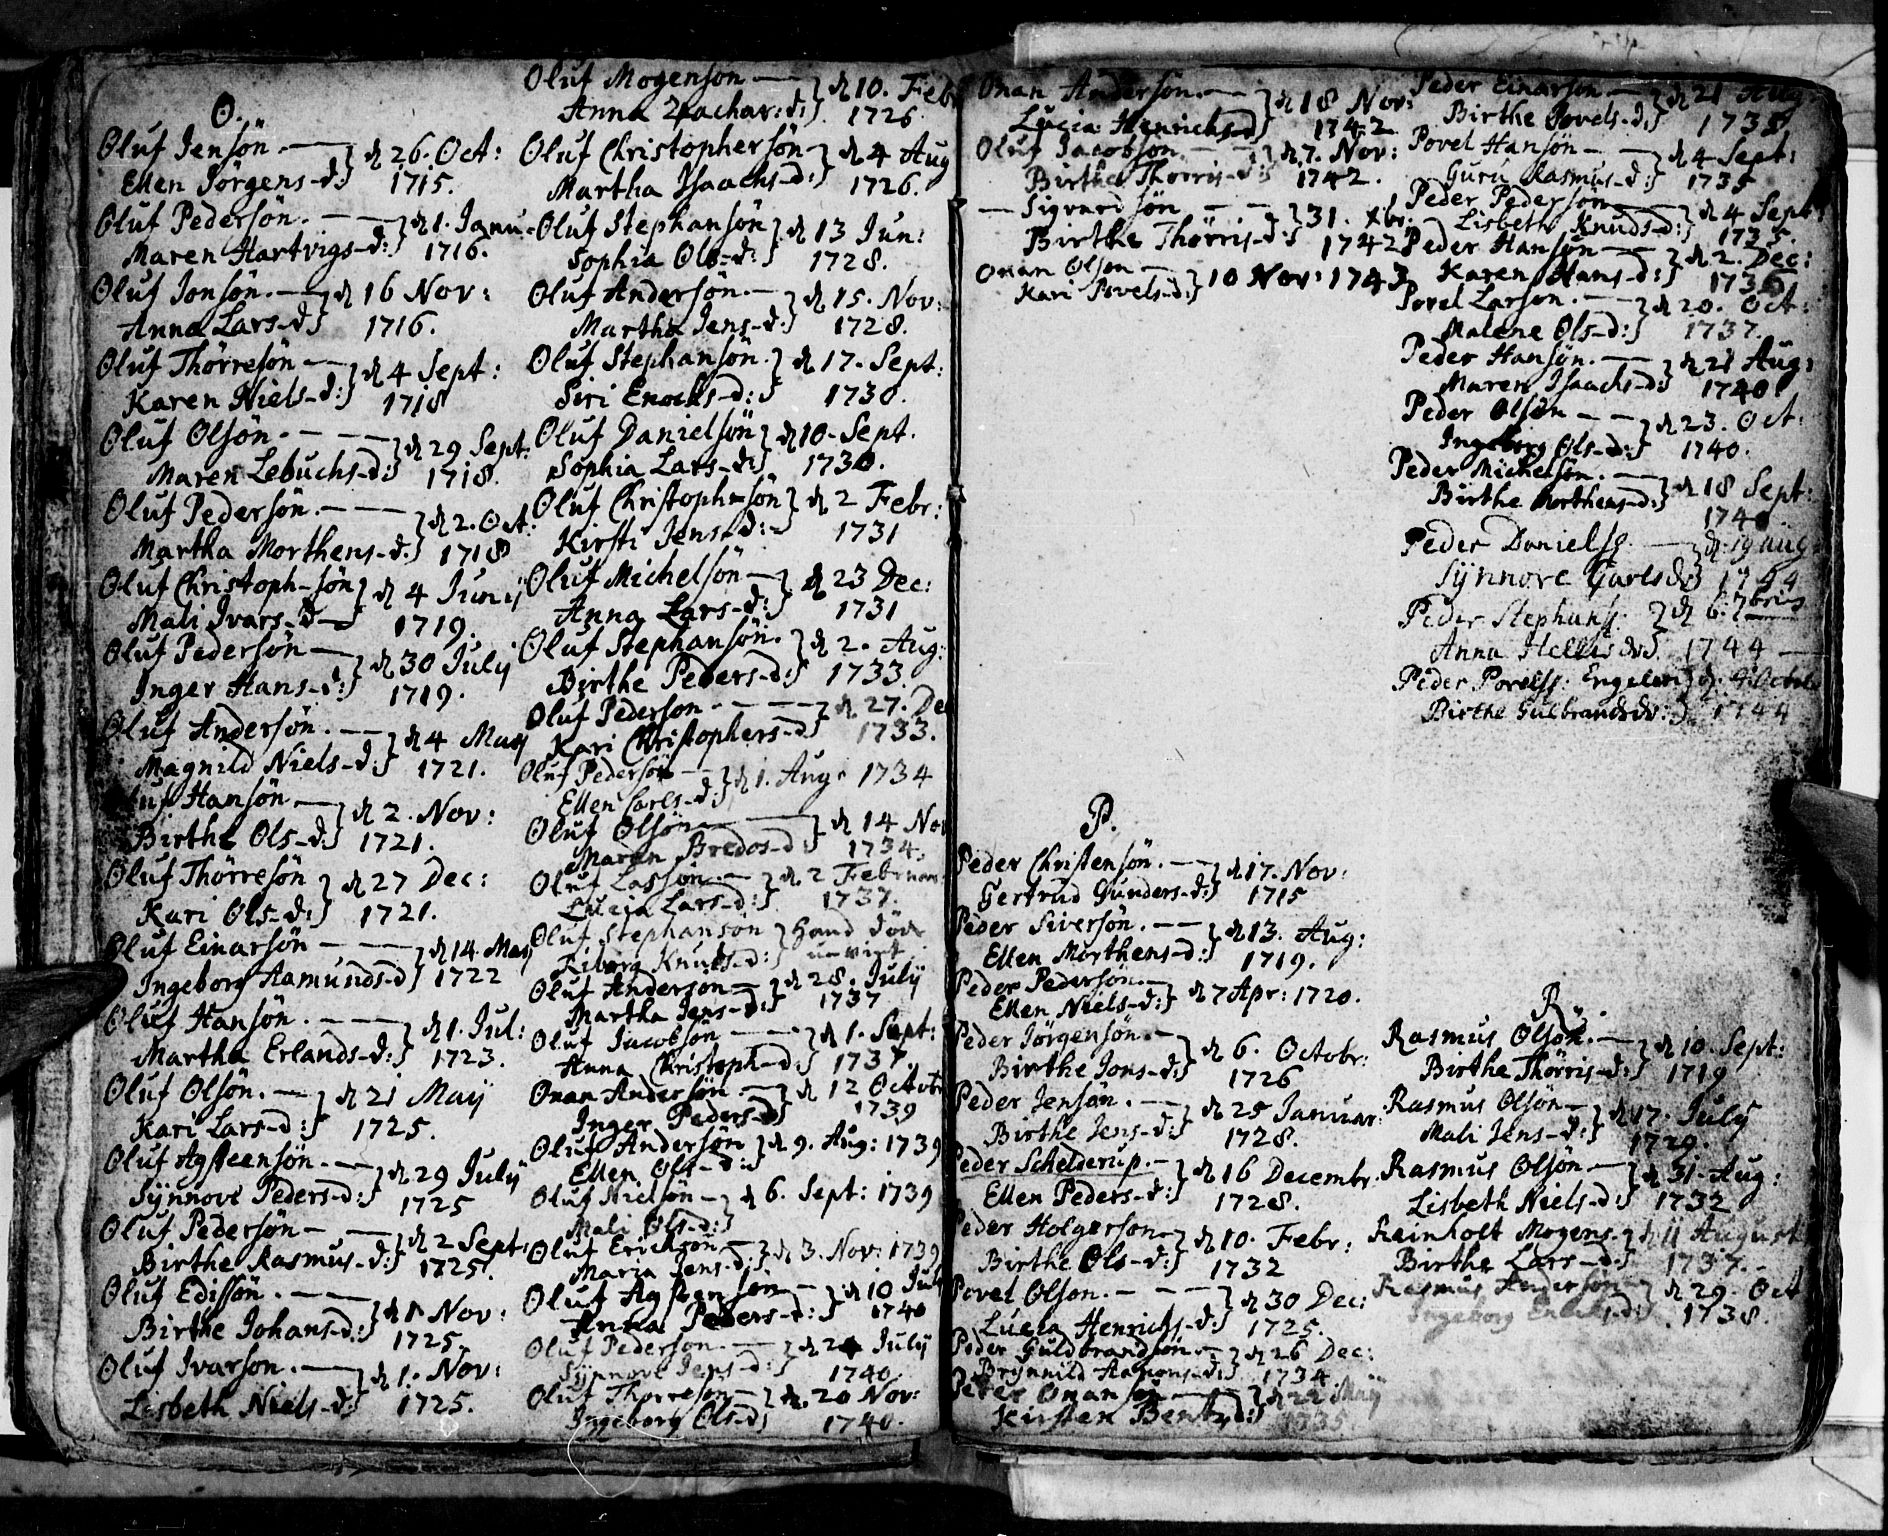 O.
Oluf Jensön. — } d 26. Oct:
Ellen Jörgens-d:} 1715.
Oluf Pedersön. — } d 1. Janu-
Maren Hartvigs-d:} 1716.
Oluf Jonsön. — } d 16 Nov:
Anna Lars-d} 1716.
Oluf Thörresön — } d 4 Sept:
Karen Niels-d:} 1718
Oluf Olsön. — } d 29 Sept.
Maren Lebuchs-d:} 1718.
Oluf Pedersön. — } d 2. Oct:
Martha Morthens-d.} 1718
Oluf Christoph-sön } d 4 Junij
Mali Ivars-d } 1719.
Oluf Pedersön — } d 30 Julij
Inger Hans-d:} 1719.
Oluf Andersön. — } d 4 Maij
Magnild Niels-d:} 1721.
Oluf Hansön — } d 2. Nov:
Birthe Ols-d:} 1721.
Oluf Thörresön } d 27 Dec:
Kari Ols-d:} 1721.
Oluf Einarsön — } d 14. Maij
Ingeborg Aamunds-d} 1722
Oluf Hansön. — } d 1. Jul:
Martha Erlands-d:} 1723.
Oluf Olsön. — } d 21 Maij
Kari Lars-d:} 1725.
Oluf Agsteensön. — } d 29 Julij
Sÿnnove Peders-d:} 1725
Oluf Pedersön — } d 2 Sept:
Birthe Rasmus-d:} 1725.
Oluf Edissön. — } d 1 Nov:
Birthe Johans-d:} 1725.
Oluf Ivarson. — } d 1. Nov:
Lisbeth Niels-d:} 1725.
Oluf Mogenson — } d 10. Feb
Anna Zachar:d:} 1726.
Oluf Christophersön } d 4 Aug
Martha Isaachs-d:} 1726.
Oluf Stephansön } d 13 Jun:
Sophia Ols-d:} 1728.
Oluf Andersön. — } d 15. Nov:
Martha Jens-d:} 1728.
Oluf Stephansön. } d 17. Sept:
Siri Enochs-d:} 1730.
Oluf Danielsön } d 10. Sept.
Sophia Lars-d:} 1730.
Oluf Christoph-sön } d 2 Febr:
Kirsti Jens-d:- 1731
Oluf Michelsön — } d 23 Dec:
Anna Lars-d:} 1731
Oluf Stephansön. } d 2. Aug:
Birthe Peders-d:} 1733.
Oluf Pederson. — } d 27. De
Kari Christophers-d} 1733.
Oluf Pedersön — } d 1. Aug: 1734
Ellen Carls-d:}
Oluf Olsön — } d 14 Nov
Maren Bredos-d:} 1734.
Oluf Lassön. — } d 2 Februar:
Lucia Lars-d:} 1737.
Oluf Stephanson } Hand döde
Riborg Knuds-d:}
Oluf Anderson — } d 28. Julij
Martha Jens-d:} 1737
Oluf Jacobsön — } d 1. Sept:
Anna Christoph-d:} 1737.
Onan Andersön. — } d 12 Octobr
Inger Peders-d} 1739
Oluf Andersön } d 9. Aug: 1739
Ellen Ols-d:}
Oluf Nielsön — } d 6. Sept: 1739
Mali Ols-d:}
Oluf Ericksön — } d 3. Nov: 1739
Maria Jens-d:}
Oluf Agsteenson — } d 10 Jul
Anna Peders-d:} 1740
Oluf Pederson. — } d 24 Julij
Sÿnnove Jens-d:} 1740.
Oluf Thorreson — } d. 20 Nov:
Ingeborg Ols-d} 1740.
Onan Andersön. — } d 18 Nov:
Lucia Henrichs-d} 1742.
Oluf Jacobson. — } d 7. Nov:
Birthe Thorris-d:} 1742.
— Sigvardsön — } 31. xbr:
Birthe Thörris-d:} 1742
Onan Olson — } 10 Nov: 1743
Kari Povels-d:}
P.
Peder Christensön. — } d 17. Nov:
Gertrud Gunders-d:} 1715
Peder Siversön. — } d 13. Aug:
Ellen Morthens-d:} 1719.
Peder Pedersön. — } d 7 Apr: 1720.
Ellen Niels-d:}
Peder Jörgensön. — } d 6. Octobr:
Birthe Jons-d:} 1726
Peder Jensön. — } d 25 Januar:
Birthe Jens-d:} 1728.
Peder Schelderup. — } d 16 Decembr.
Ellen Peders-d:} 1728.
Peder Holgerson — } d 10. Febr:
Birthe Ols-d:} 1732
Povel Olson. — } d 30 Dec:
Lucia Henrichs-d:} 1725.
Peder Guldbrandsön — } d 26 Dec:
Brynnild Aamons-d:} 1734
Peder Onansön — } d 22 Maij
Kirsten Bentz-d:} 1735.
Peder Einarson. — } d 21 Aug:
Birthe Povels-d:} 1735
Povel Hansön — } d 4 Sept:
Guru Rasmus-d:} 1735
Peder Pederson — } d 4 Sept
Lisbeth Knuds-d:} 1735.
Peder Hansön — } d 2. Dec:
Karen Hans-d:} 1736
Povel Larson. — } d 20. Oct:
Malene Ols-d:} 1737.
Peder Hansön. — } d 21 Aug:
Maren Isaachs-d:} 1740
Peder Olsön — } d 23. Oct:
Ingeborg Ols-d:} 1740.
Peder Michelsön. — } d 18 Sept:
Birthe Morthens-d:} 1740.
Peder Danielss. — } d. 19 Aug
Sÿnnove Garlsdr} 1744
Peder Stephans: } d 6. 7bris
Anna Hellesdr} 1744 —
Peder Povelss. d. 4 Octob
Birthe Gulbrandsdr:} 1744
R.
Rasmus Olsön. — } d 10. Sept:
Birthe Thörris-d:} 1719
Rasmus Olsön — } d 17. Julÿ
Mali Jens-d:} 1729.
Rasmus Olsön — } d 31. Aug:
Lisbeth Niels-d:} 1732
Reinholt Mogens- } d 11 August
Birthe Lars-d:} 1737.
Rasmus Anderson } d 29. Oct
Ingeborg 1738.